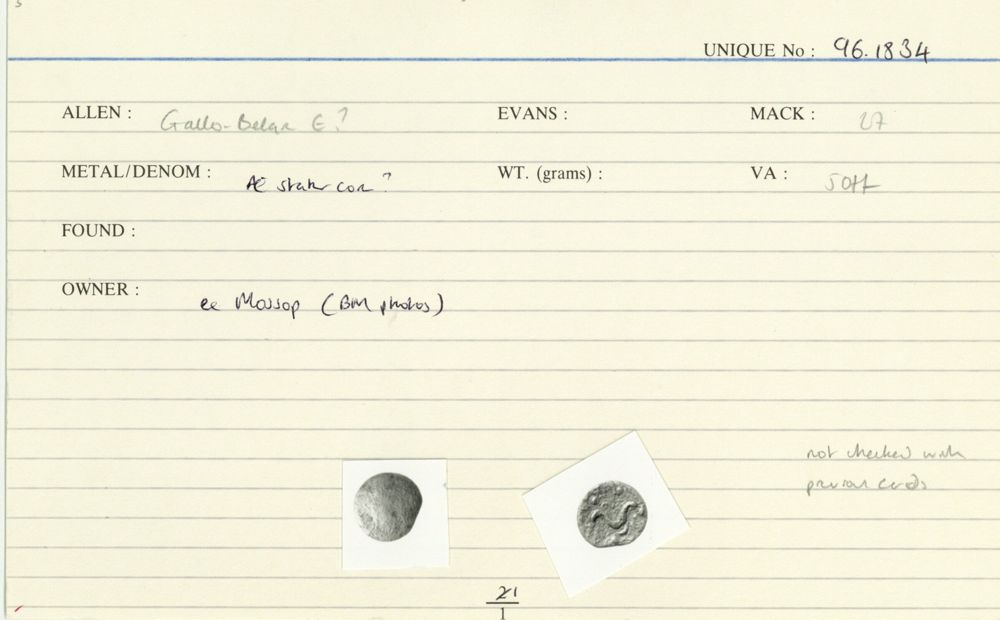 UNIQUE No : 96.1834
ALLEN : Gallo-Belgic E? EVANS : MACK : 27
METAL/DENOM : Æ stater core? WT. (grams) : VA :
FOUND :
OWNER : ex Mossop (BM photos)
not checked with
previous cards
21
1